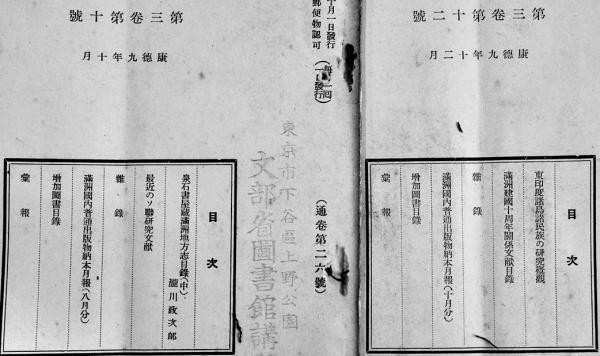 第三卷第十二號
康德九年十二月
目次
東印度諸島諸民族の研究概觀
滿洲建國十周年關係文獻目錄
雜錄
滿洲國內普通出版物納本月報(十月分)
增加圖書目錄
彙報
十月一日發行
郵便物認可
(通卷第二六號)
東京市下谷區上野公園
文部省圖書館講
第三卷第十號
康德九年十月
目次
泉石書屋藏滿洲地方志目錄(中)
瀧川政次郎
最近のソ聯研究文獻
雜錄
滿洲國內普通出版物納本月報(八月分)
增加圖書目錄
彙報